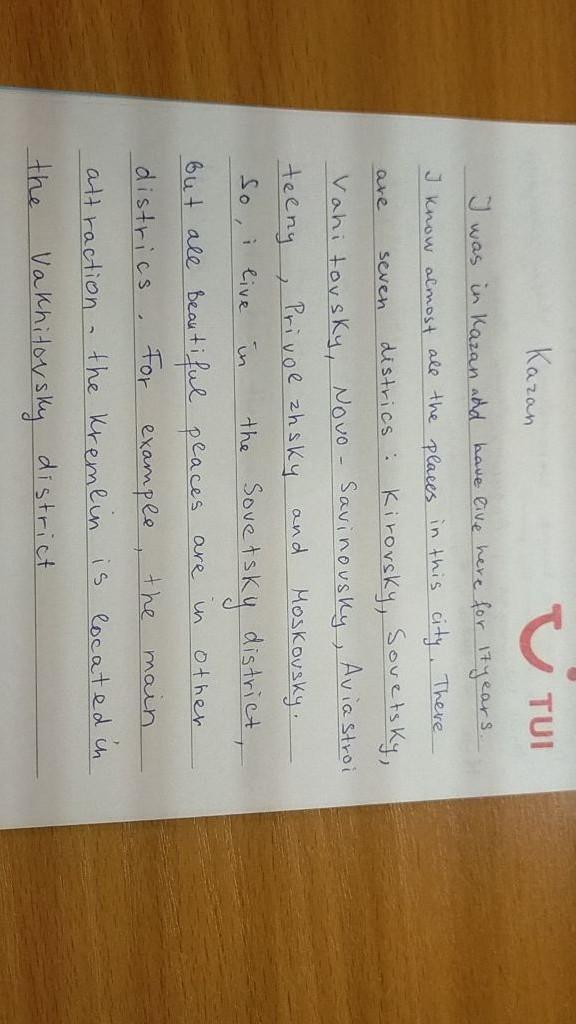 Kazan
TUI
I was in Kazan and have live here for 17 years.
I know almost all the places in this city. There
are seven districs: Kirovsky, Sovetsky,
Vahitovsky, Novo-Savinovsky, Aviastroi
teeny, Privolzhsky and Moskovsky.
So, i live in the Sovetsky district,
but all beautiful places are in other
districs. For example, the main
attraction - the Kremlin is located in
the Vakhitovsky district